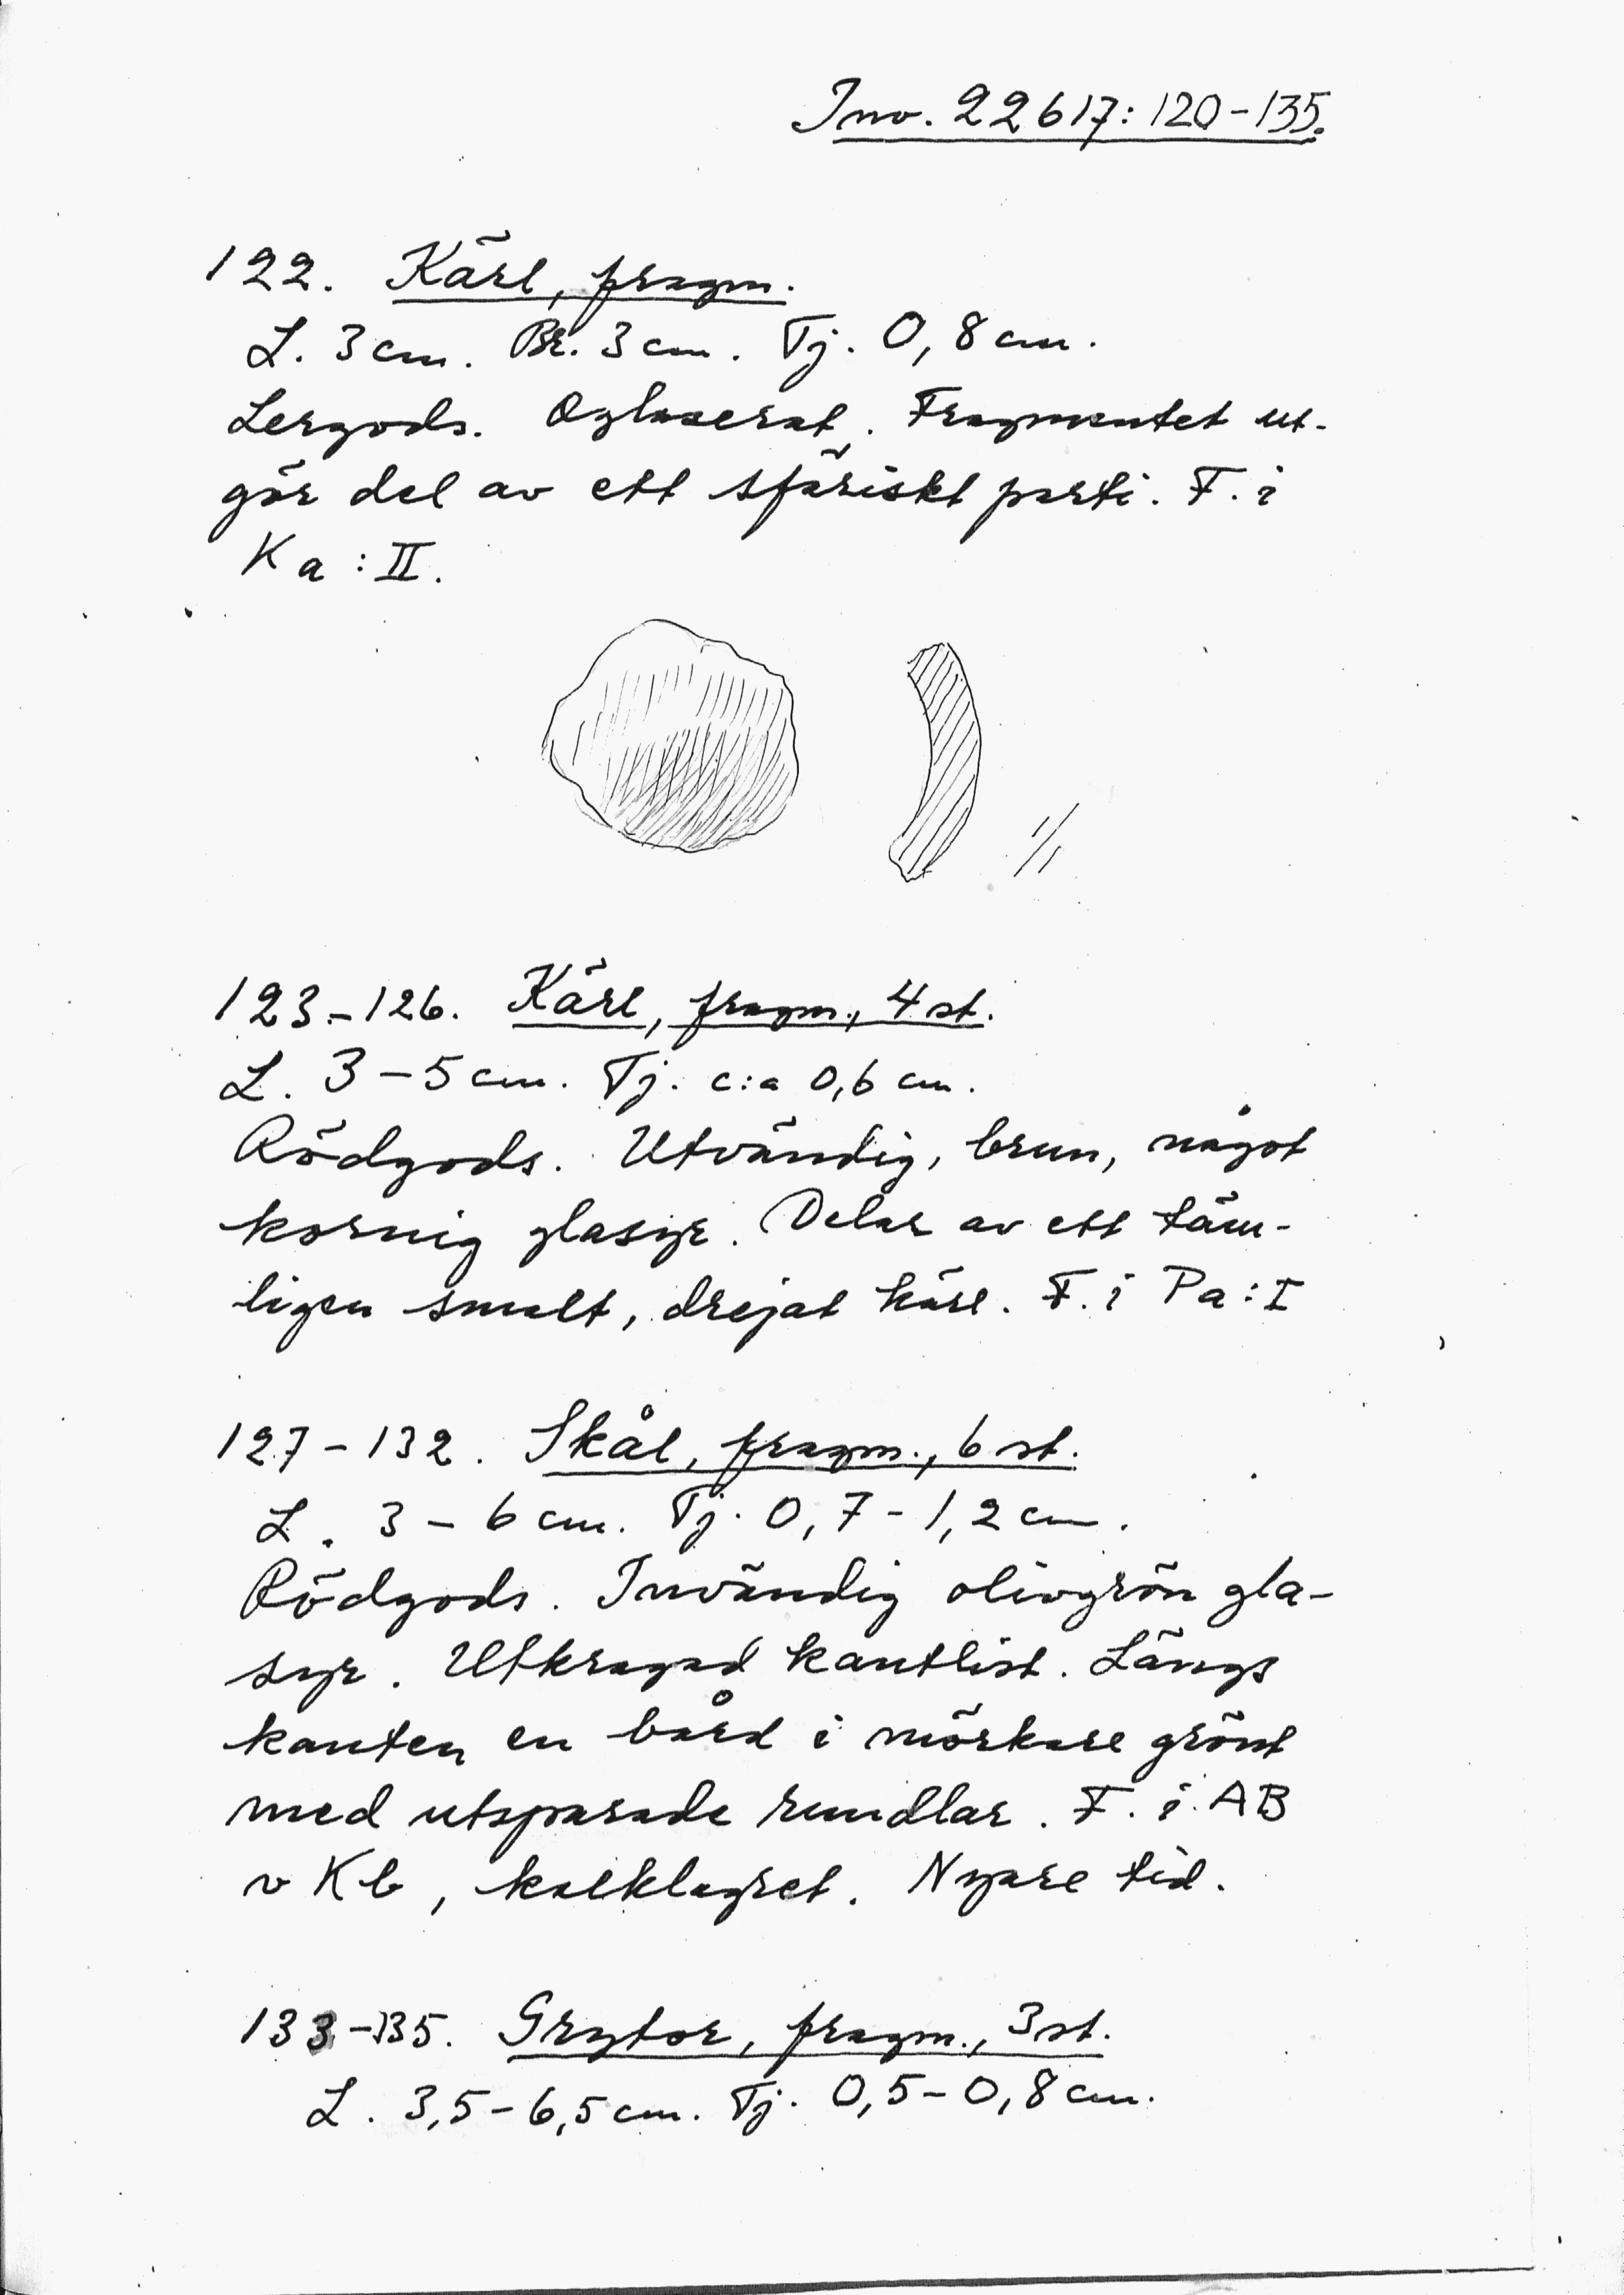 Inv. 22617: 120-135.
122. Kärl, fragm.
L. 3 cm. Br. 3 cm. Tj. 0,8 cm.
Lergods. Oglaserat. Fragmentet ut-
gör del av ett sfäriskt parti. F. i
Ka : II.
1/1
123-126. Kärl, fragm., 4 st.
L. 3-5 cm. Tj. c:a 0,6 cm.
Rödgods. Utvändig, brun, något
kornig glasyr. Delar av ett täm-
ligen smalt, drejat kärl. F. i Pa : I
127-132. Skål, fragm., 6 st.
L. 3-6 cm. Tj. 0,7-1,2 cm.
Rödgods. Invändig olivgrön gla-
syr. Utkragad kantlist. Längs
kanten en bård i mörkare grönt
med utsparade rundlar. F. i AB
v Kb, kalklagret. Nyare tid.
133-135. Grytor, fragm., 3 st.
L. 3,5-6,5 cm. Tj. 0,5-0,8 cm.